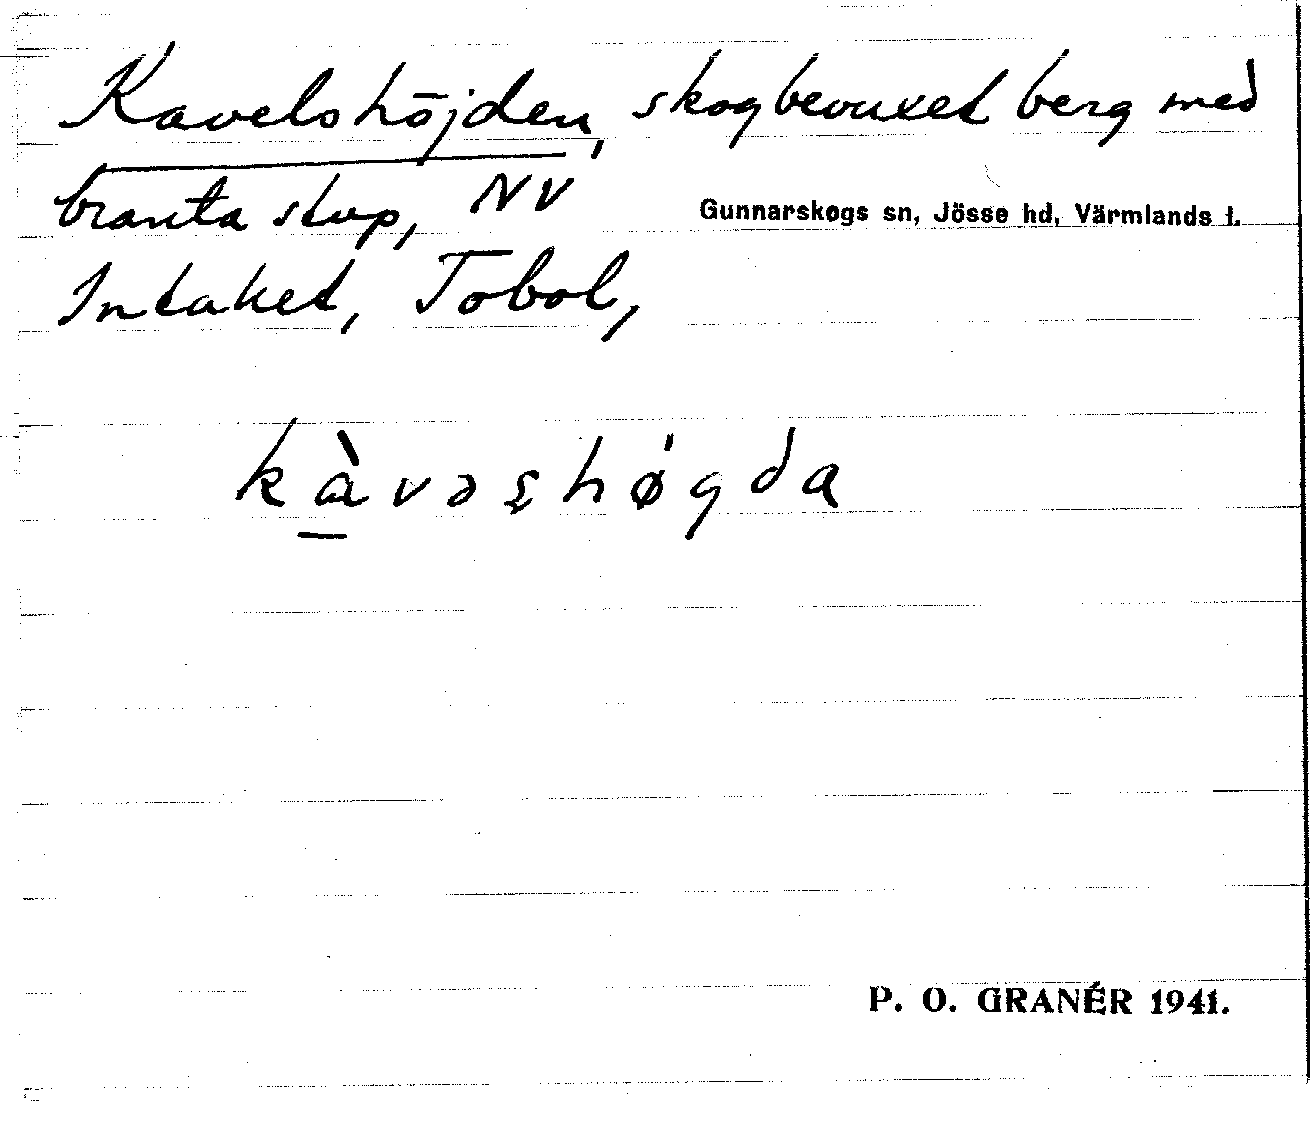 Kavelshöjden, skogbevuxet berg med
branta stup, NV
Gunnarskogs sn, Jösse hd, Värmlands l.
Intaket, Tobol,
kàvəʂhǿgda
P. O. GRANÉR 1941.